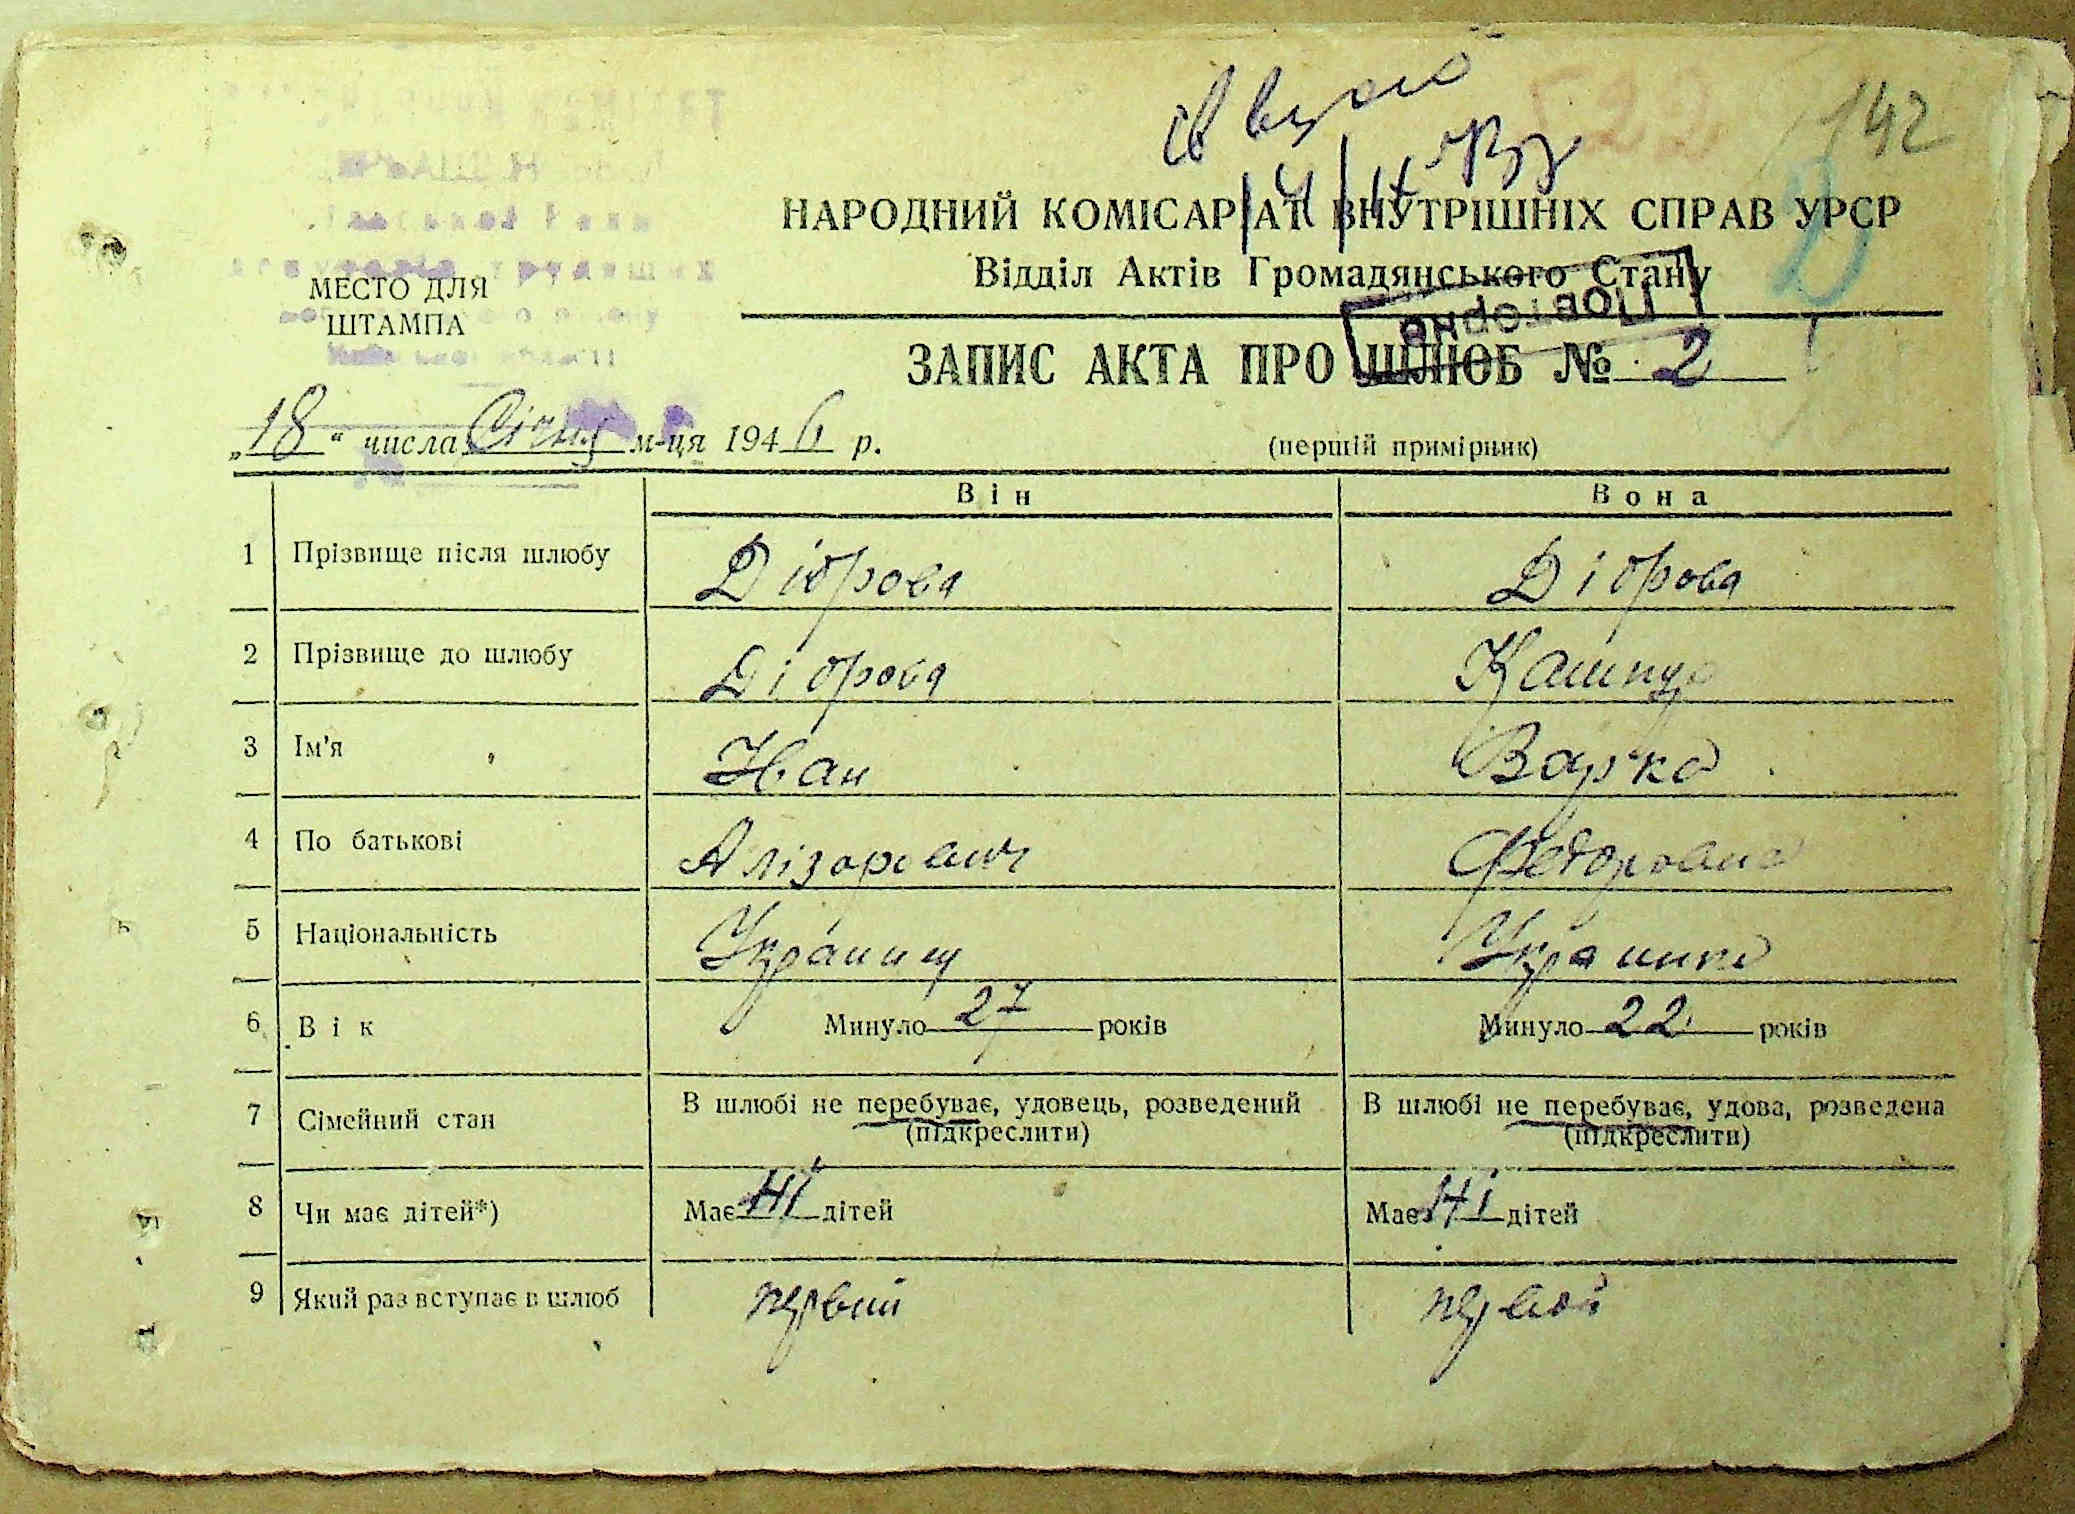 142
НАРОДНИЙ КОМІСАРІАТ ВНУТРІШНІХ СПРАВ УРСР
Відділ Актів Громадянського Стану
МЕСТО ДЛЯ
ШТАМПА
Повторно
ЗАПИС АКТА ПРО ШЛЮБ № 2
„18“ числа Січня м-ця 1946 р.
(перший примірник)
Він Вона
1 Прізвище після шлюбу Діброва Діброва
2 Прізвище до шлюбу Діброва Кашпур
3 Ім'я Иван Варка
4 По батькові Алізарович Федоровна
5 Національність Українец Українка
6 Вік Минуло 27 років Минуло 22 років
7 Сімейний стан В шлюбі не перебуває, удовець, розведений В шлюбі не перебуває, удова, розведена
(підкреслити) (підкреслити)
8 Чи має дітей*) Має Ні дітей Має Ні дітей
9 Який раз вступає в шлюб первий первой